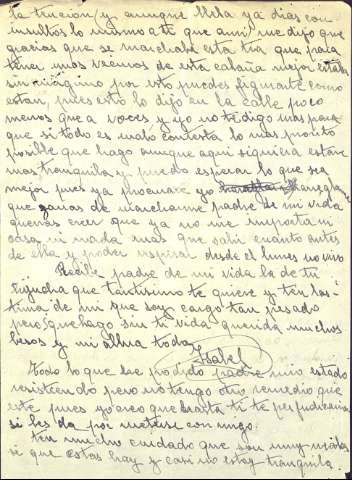 la tricion (y aunque lleba ya dias con
insultos lo mismo a ti que a mi) me dijo que
gracias que se marchaba esta tia que para
tener unos vecinos de esta calaña mejor estaba
sin ninguno por esto puedes figurarte como
estan, pues esto lo dijo en la calle poco
menos que a voces y yo no te digo mas para
que si todo es malo contesta lo mas pronto
posible que hago aunque aqui siquiera estare
mas tranquila y puedo esperar lo que sea
mejor pues ya procurare yo
que ganas de marcharme padre de mi vida
querras creer que ya no me importa ni
casa ni nada mas que salir cuanto antes
de ella y poder respirar desde el lunes no vivo
Recibe padre de mi vida la de tu
hijucha que tantisimo te quiere y ten las-
tima de mi que soy cargo tan pesado
pero que hago sin ti vida querida muchos
besos y mi alma toda
Isabel
Todo lo que he podido padre mio estado
resistiendo pero no tengo otro remedio que
este pues yo creo que hasta a ti te perjudicaria
si les da por meterse conmigo.
ten mucho cuidado que son muy malos
si que estas hay y casi no estoy tranquila.